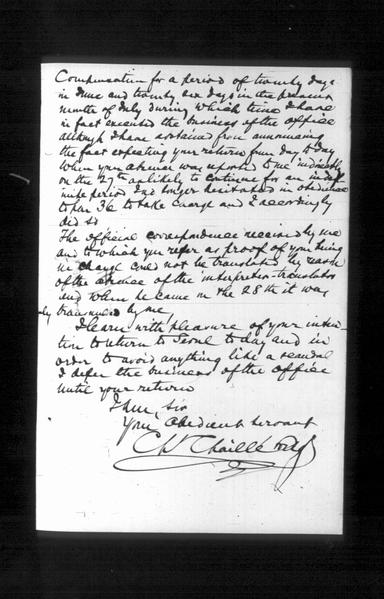 Compensation for a period of twenty days
in June and twenty six days in the present
month of July during which time I have
in fact executed the business of the office
although I have abstained from announcing
the fact expecting your return from day to day
When your absence was reported to me indirectly
on the 27th as likely to continue for an indef-
inite period I no longer hesitated in obedience
to Par 36 to take charge and I accordingly
did so
The official correspondence received by me
and to which you refer as proof of your being
in charge could not be translated by reason
of the absence of the interpreter-translator
and when he came on the 28th it was
by me
I learn with pleasure of your inten-
tion to return to Seoul to day and in
order to avoid anything like a scandal
I defer the business of the office
until your return
I am, Sir
Your Obedient Servant
Ch Chaillé Long